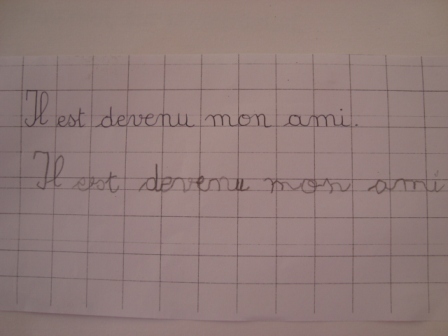 Il est devenu mon ami.
Il est devenu mon ami